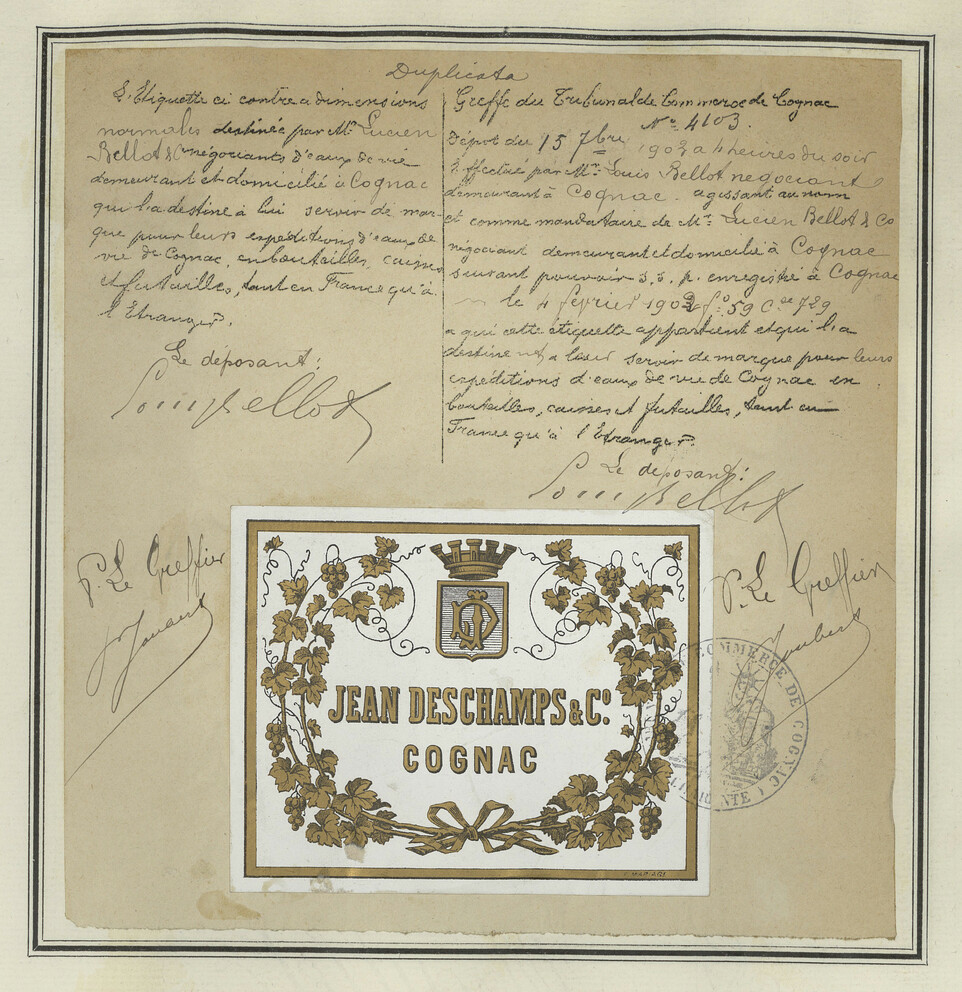 Duplicata
L'Etiquette ci contre a dimensions
normales destinée par Mr. Lucien
Bellot & Co négociants d'eaux de vie
demeurant et domicilié à Cognac
qui l'a destine à lui servir de mar-
que pour leurs expéditions d'eaux de
vie de Cognac, en bouteilles, caisses
et futailles, tant en France qu'à
l'Etranger.
Le déposant:
Louis Bellot
Greffe du Tribunal de Commerce de Cognac
No 4103.
Dépot du 15 7bre 1903 a 4 heures du soir
Effectué par Mr. Louis Bellot négociant
demeurant à Cognac. agissant au nom
et comme mandataire de Mr. Lucien Bellot & Co
négociant demeurant et domicilié à Cognac
suivant pouvoir s. s. p. enregistré à Cognac
le 4 février 1903 fo 59 Cse 729
a qui cette étiquette appartient et qui l'a
destine a leur servir de marque pour leurs
expéditions d'eaux de vie de Cognac en
bouteilles, caisses et futailles, tant en
France qu'à l'Etranger.
Le déposant:
Louis Bellot
P. Le Greffier
Joubert
P. Le Greffier
Joubert
JEAN DESCHAMPS & Co.
COGNAC
COMMERCE DE COGNAC